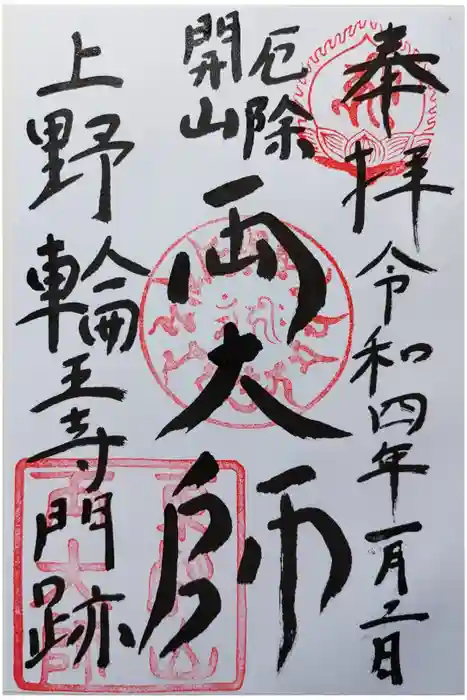 奉拝
令和四年一月二日
厄除
開山
両大師
上野輪王寺門跡
東叡山
両大師